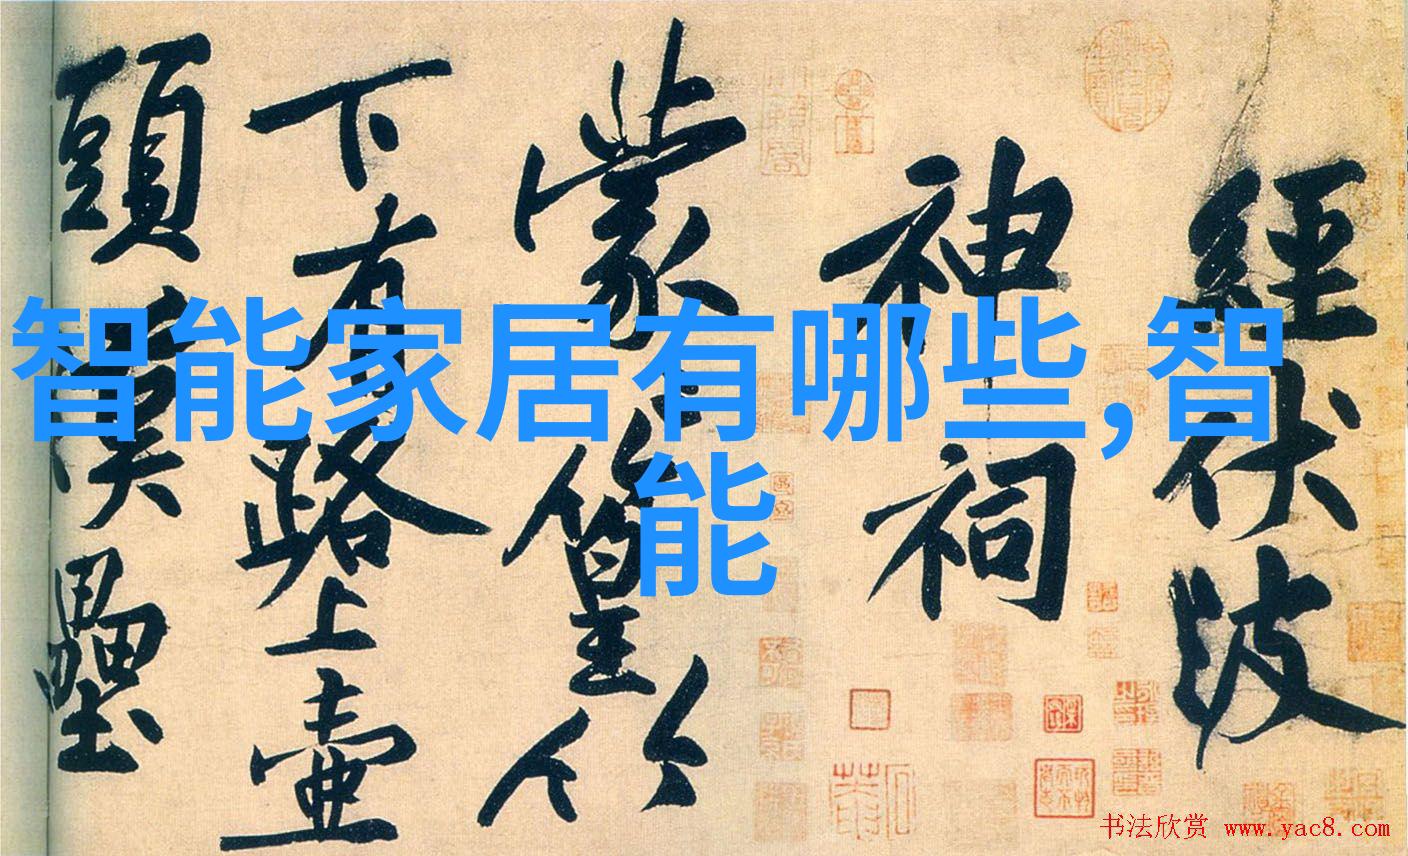 智能家居有哪些,智
能
經伏波
神祠
蒙篁竹
下有路上壺
頭漢壘
书法欣赏 www.yac8.com